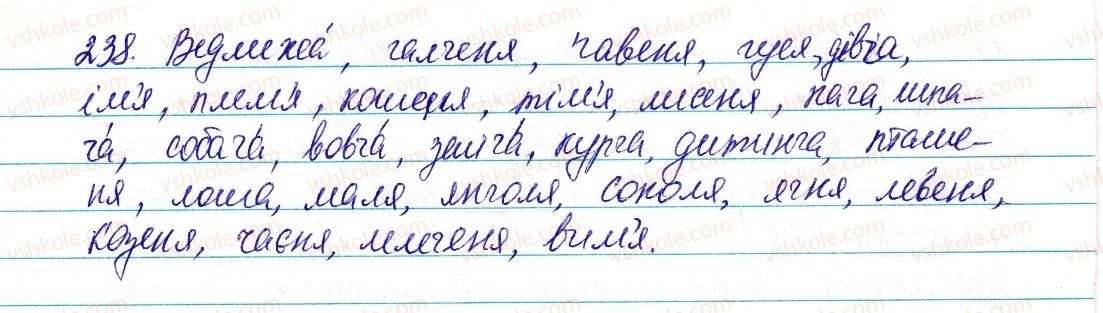 238. Ведмежа́, галченя, павеня, гуся, дівча,
ім'я, плем'я, кошеня, тім'я, лисеня, пага, шпа-
ча́, собача́, вовча́, зайча́, курча, дитинча, пташе-
ня, лоша, маля, янголя, соколя, ягня, левеня,
козеня, чаєня, мишеня, вим'я.